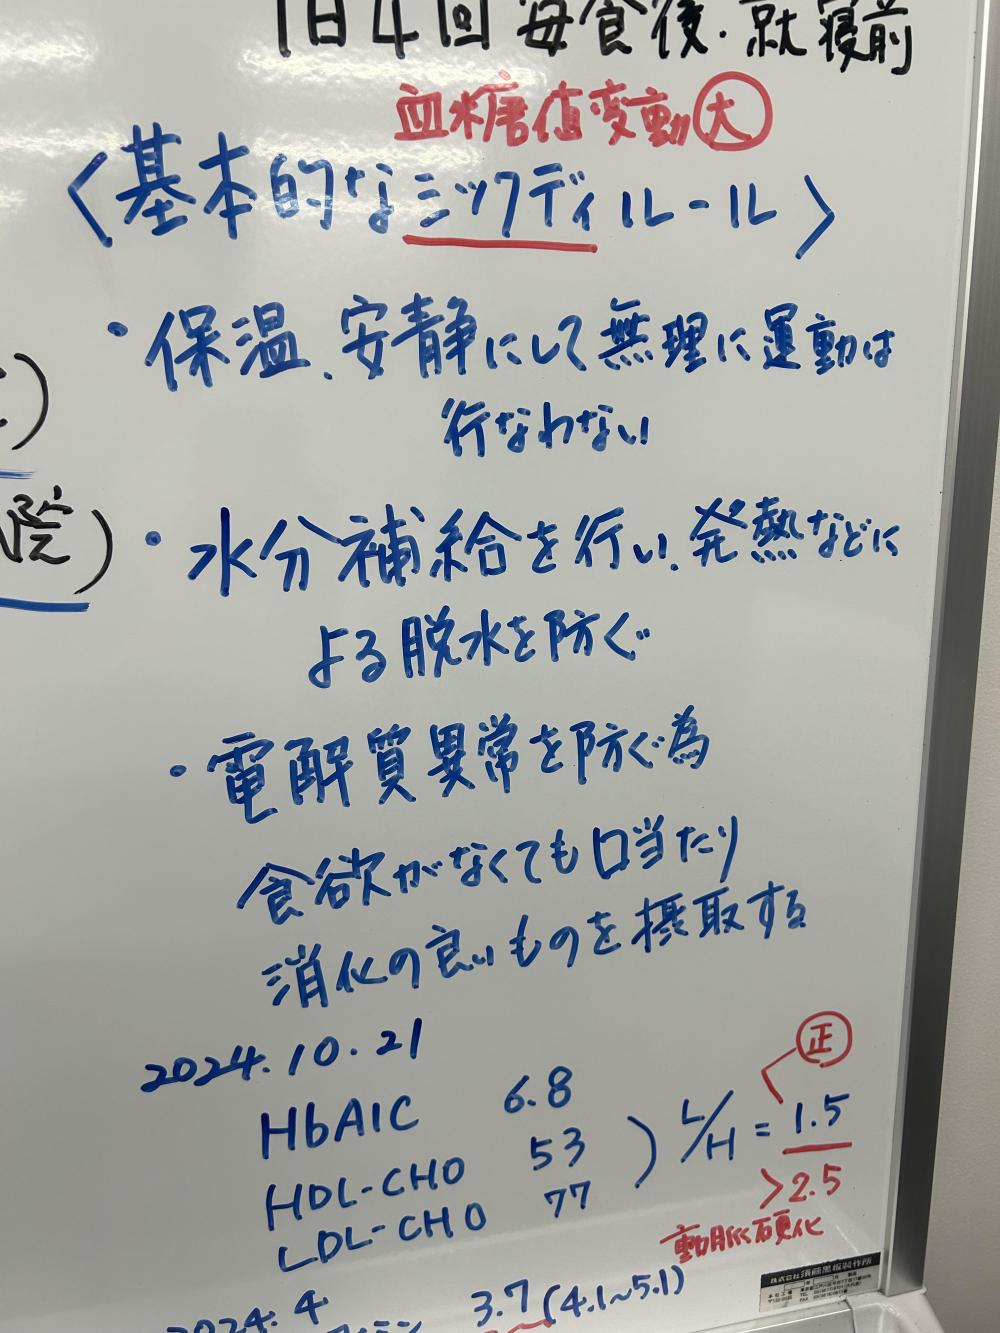 1日4回毎食後・就寝前
血糖値変動 大
〈基本的なシックディルール〉
・保温、安静にして無理に運動は
行なわない
・水分補給を行い、発熱などに
よる脱水を防ぐ
・電解質異常を防ぐ為
食欲がなくても口当たり
消化の良いものを摂取する
2024.10.21
正
HbA1C 6.8
HDL-CHO 53
LDL-CHO 77
) L/H = 1.5
>2.5
動脈硬化
2024.4
3.7 (4.1~5.1)
株式会社 須藤黒板製作所